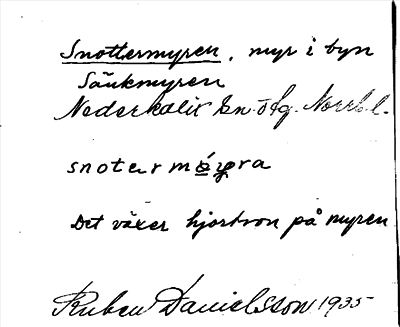 Snottermyren, myr i byn
Sänkmyren
Nederkalix sn. o tg. Norrb. l.
snotermýra
Det växer hjortron på myren
Ruben Danielsson 1935